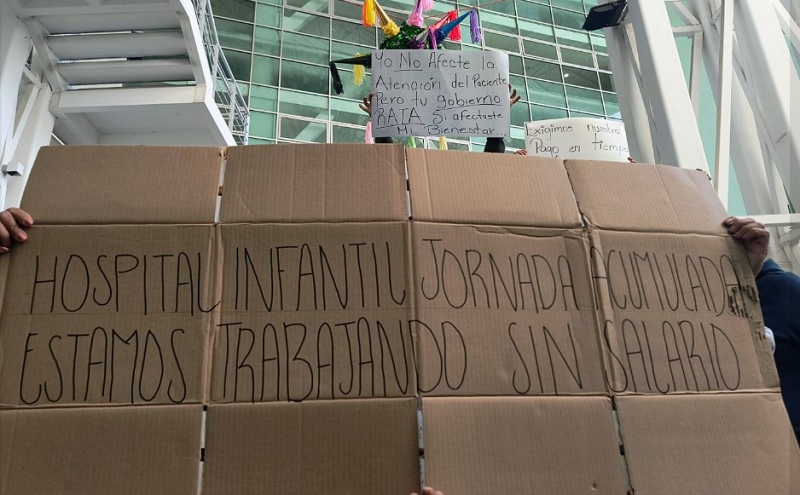 Yo No Afecte la
Atención del Paciente
Pero tu gobierno
RATA Si afectaste
Mi Bienestar...
Exigimos Nuestro
Pago en tiempo
HOSPITAL INFANTIL JORNADA ACUMULADA
ESTAMOS TRABAJANDO SIN SALARIO